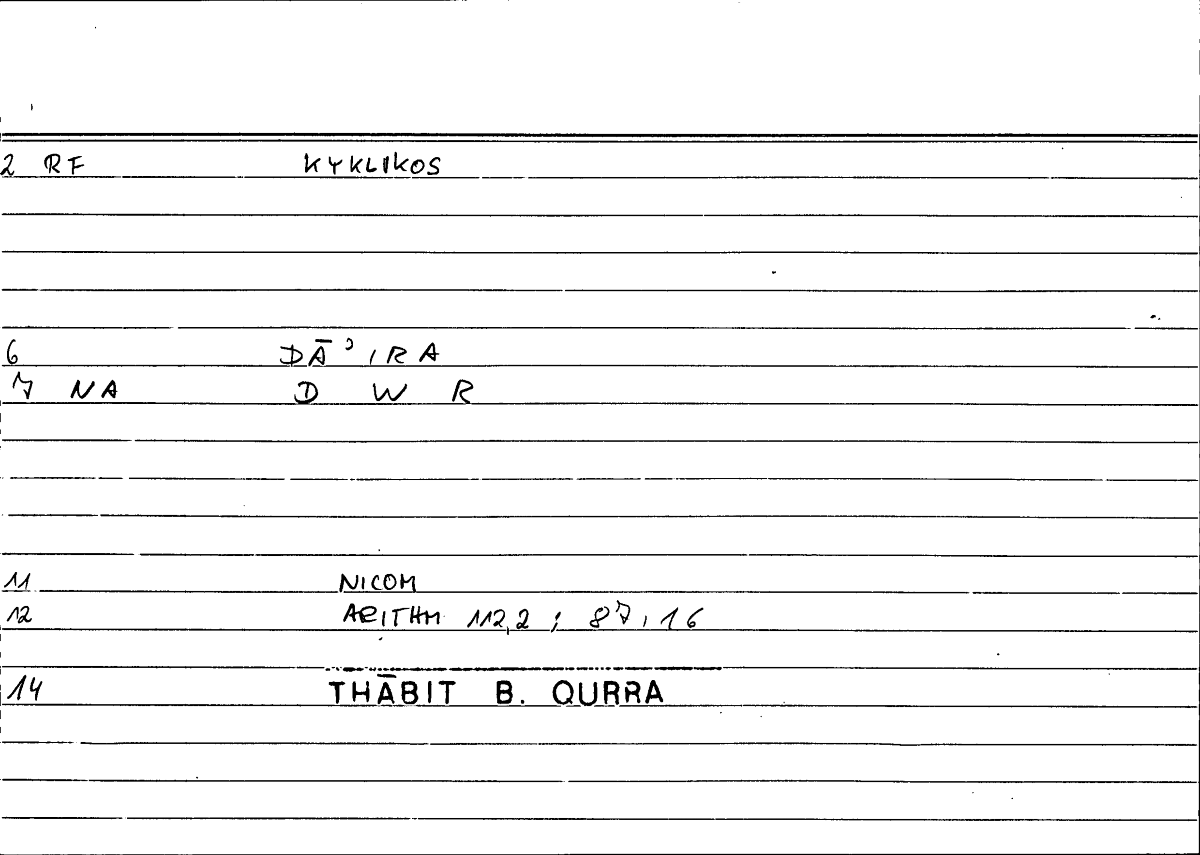 2 RF KYKLIKOS
6 DĀʾIRA
7 NA D W R
11 NICOM
12 ARITHM 112,2 ; 87,16
14 THĀBIT B. QURRA